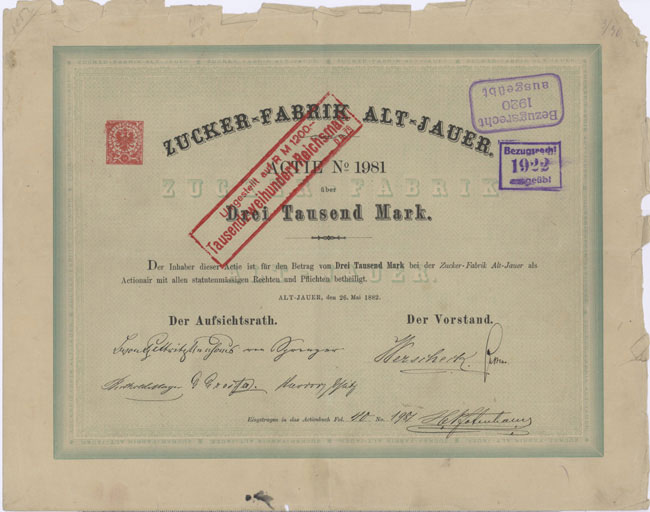 3/30
Bezugsrecht
1920
ausgeübt
ZUCKER-FABRIK ALT-JAUER.
Bezugsrecht
1922
ausgeübt
Umgestellt auf R M 1200.-
Tausendzweihundert Reichsmark
ACTIE No 1981
ZUCKER FABRIK
über
Drei Tausend Mark.
Der Inhaber dieser Actie ist für den Betrag von Drei Tausend Mark bei der Zucker-Fabrik Alt-Jauer als
Actionair mit allen statutenmässigen Rechten und Pflichten betheiligt.
ALT-JAUER, den 26. Mai 1882.
Der Aufsichtsrath. Der Vorstand.
von Sprenger
Werscheck
Eingetragen in das Actienbuch Fol. 40 No. 1981